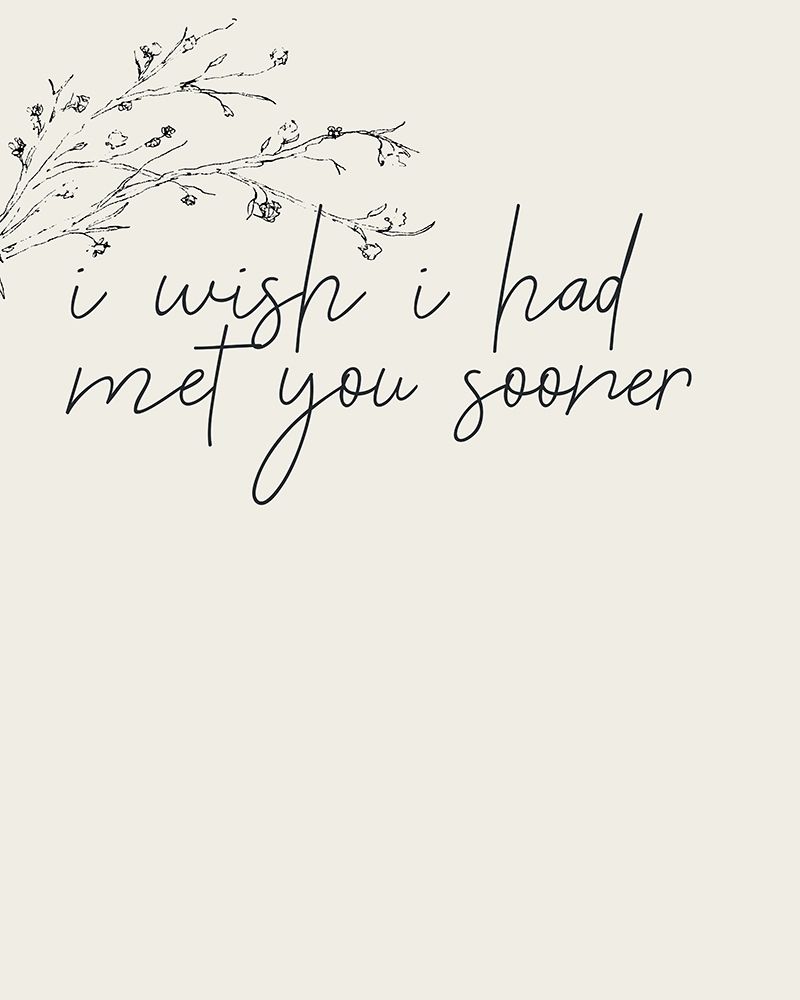 i wish i had
met you sooner